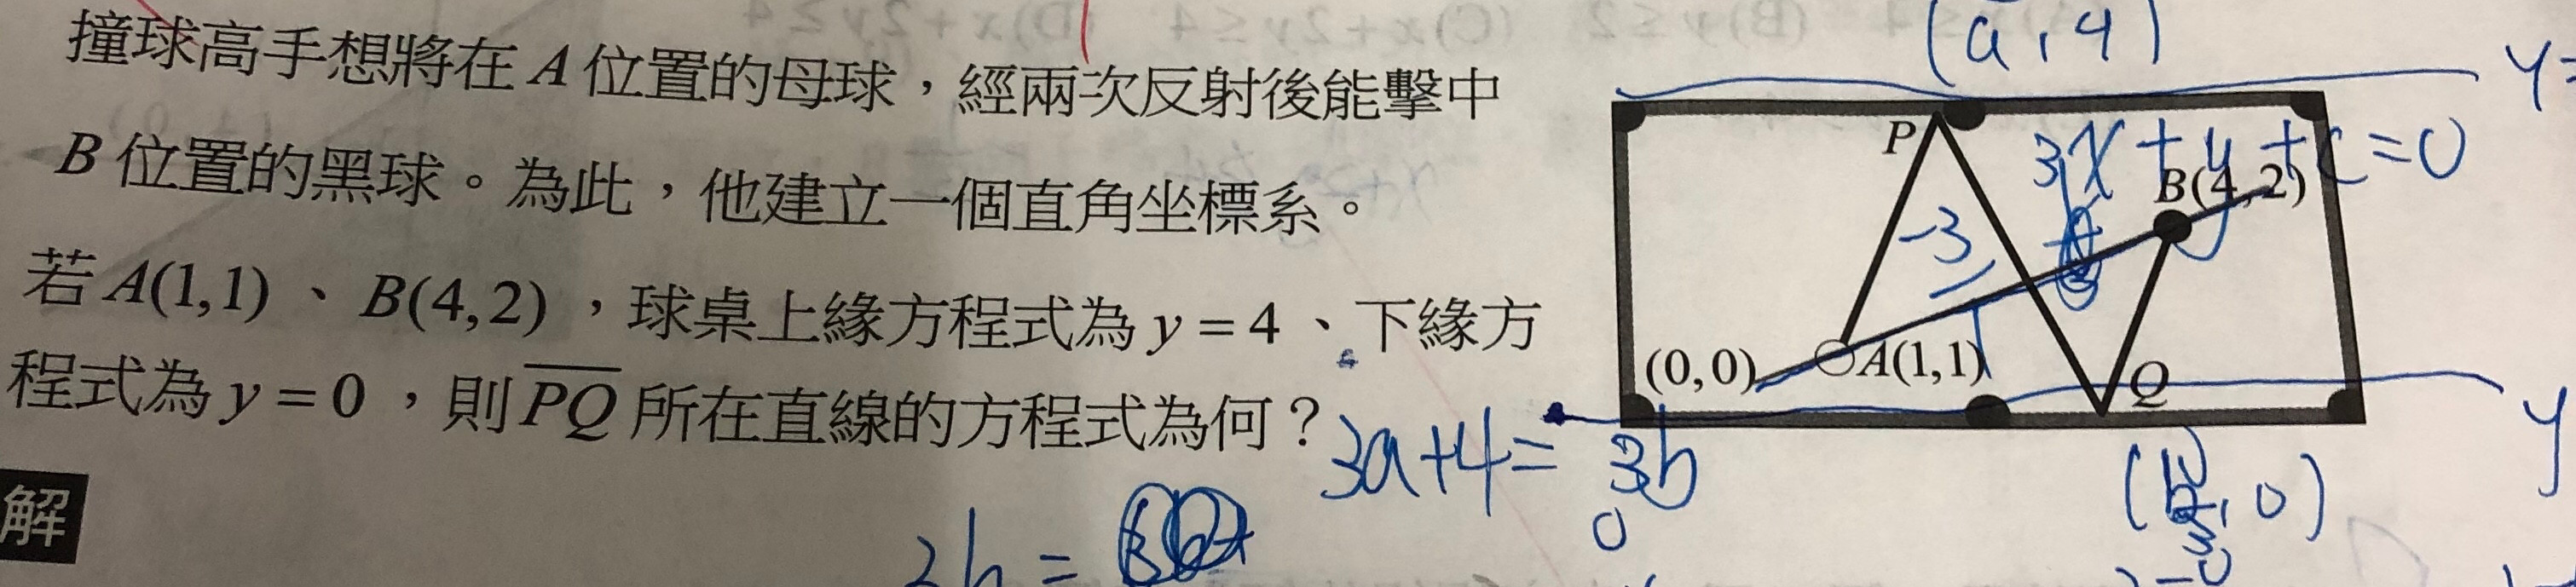 撞球高手想將在A位置的母球，經兩次反射後能擊中
B位置的黑球。為此，他建立一個直角坐標系。
若A(1,1)、B(4,2)，球桌上緣方程式為y=4、下緣方
程式為y=0，則PQ所在直線的方程式為何？
解
(a,4)
y=
P
3x+y+c=0
B(4,2)
-3
(0,0)
A(1,1)
Q
y
3a+4=3b
0
,0)